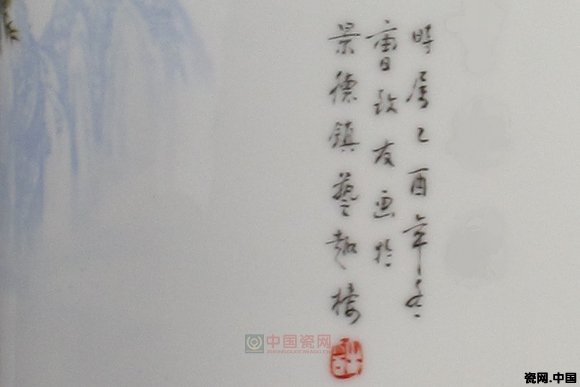 時属乙酉年冬
曹致友画於
景德鎮藝趣楼
中国瓷网
瓷网.中国